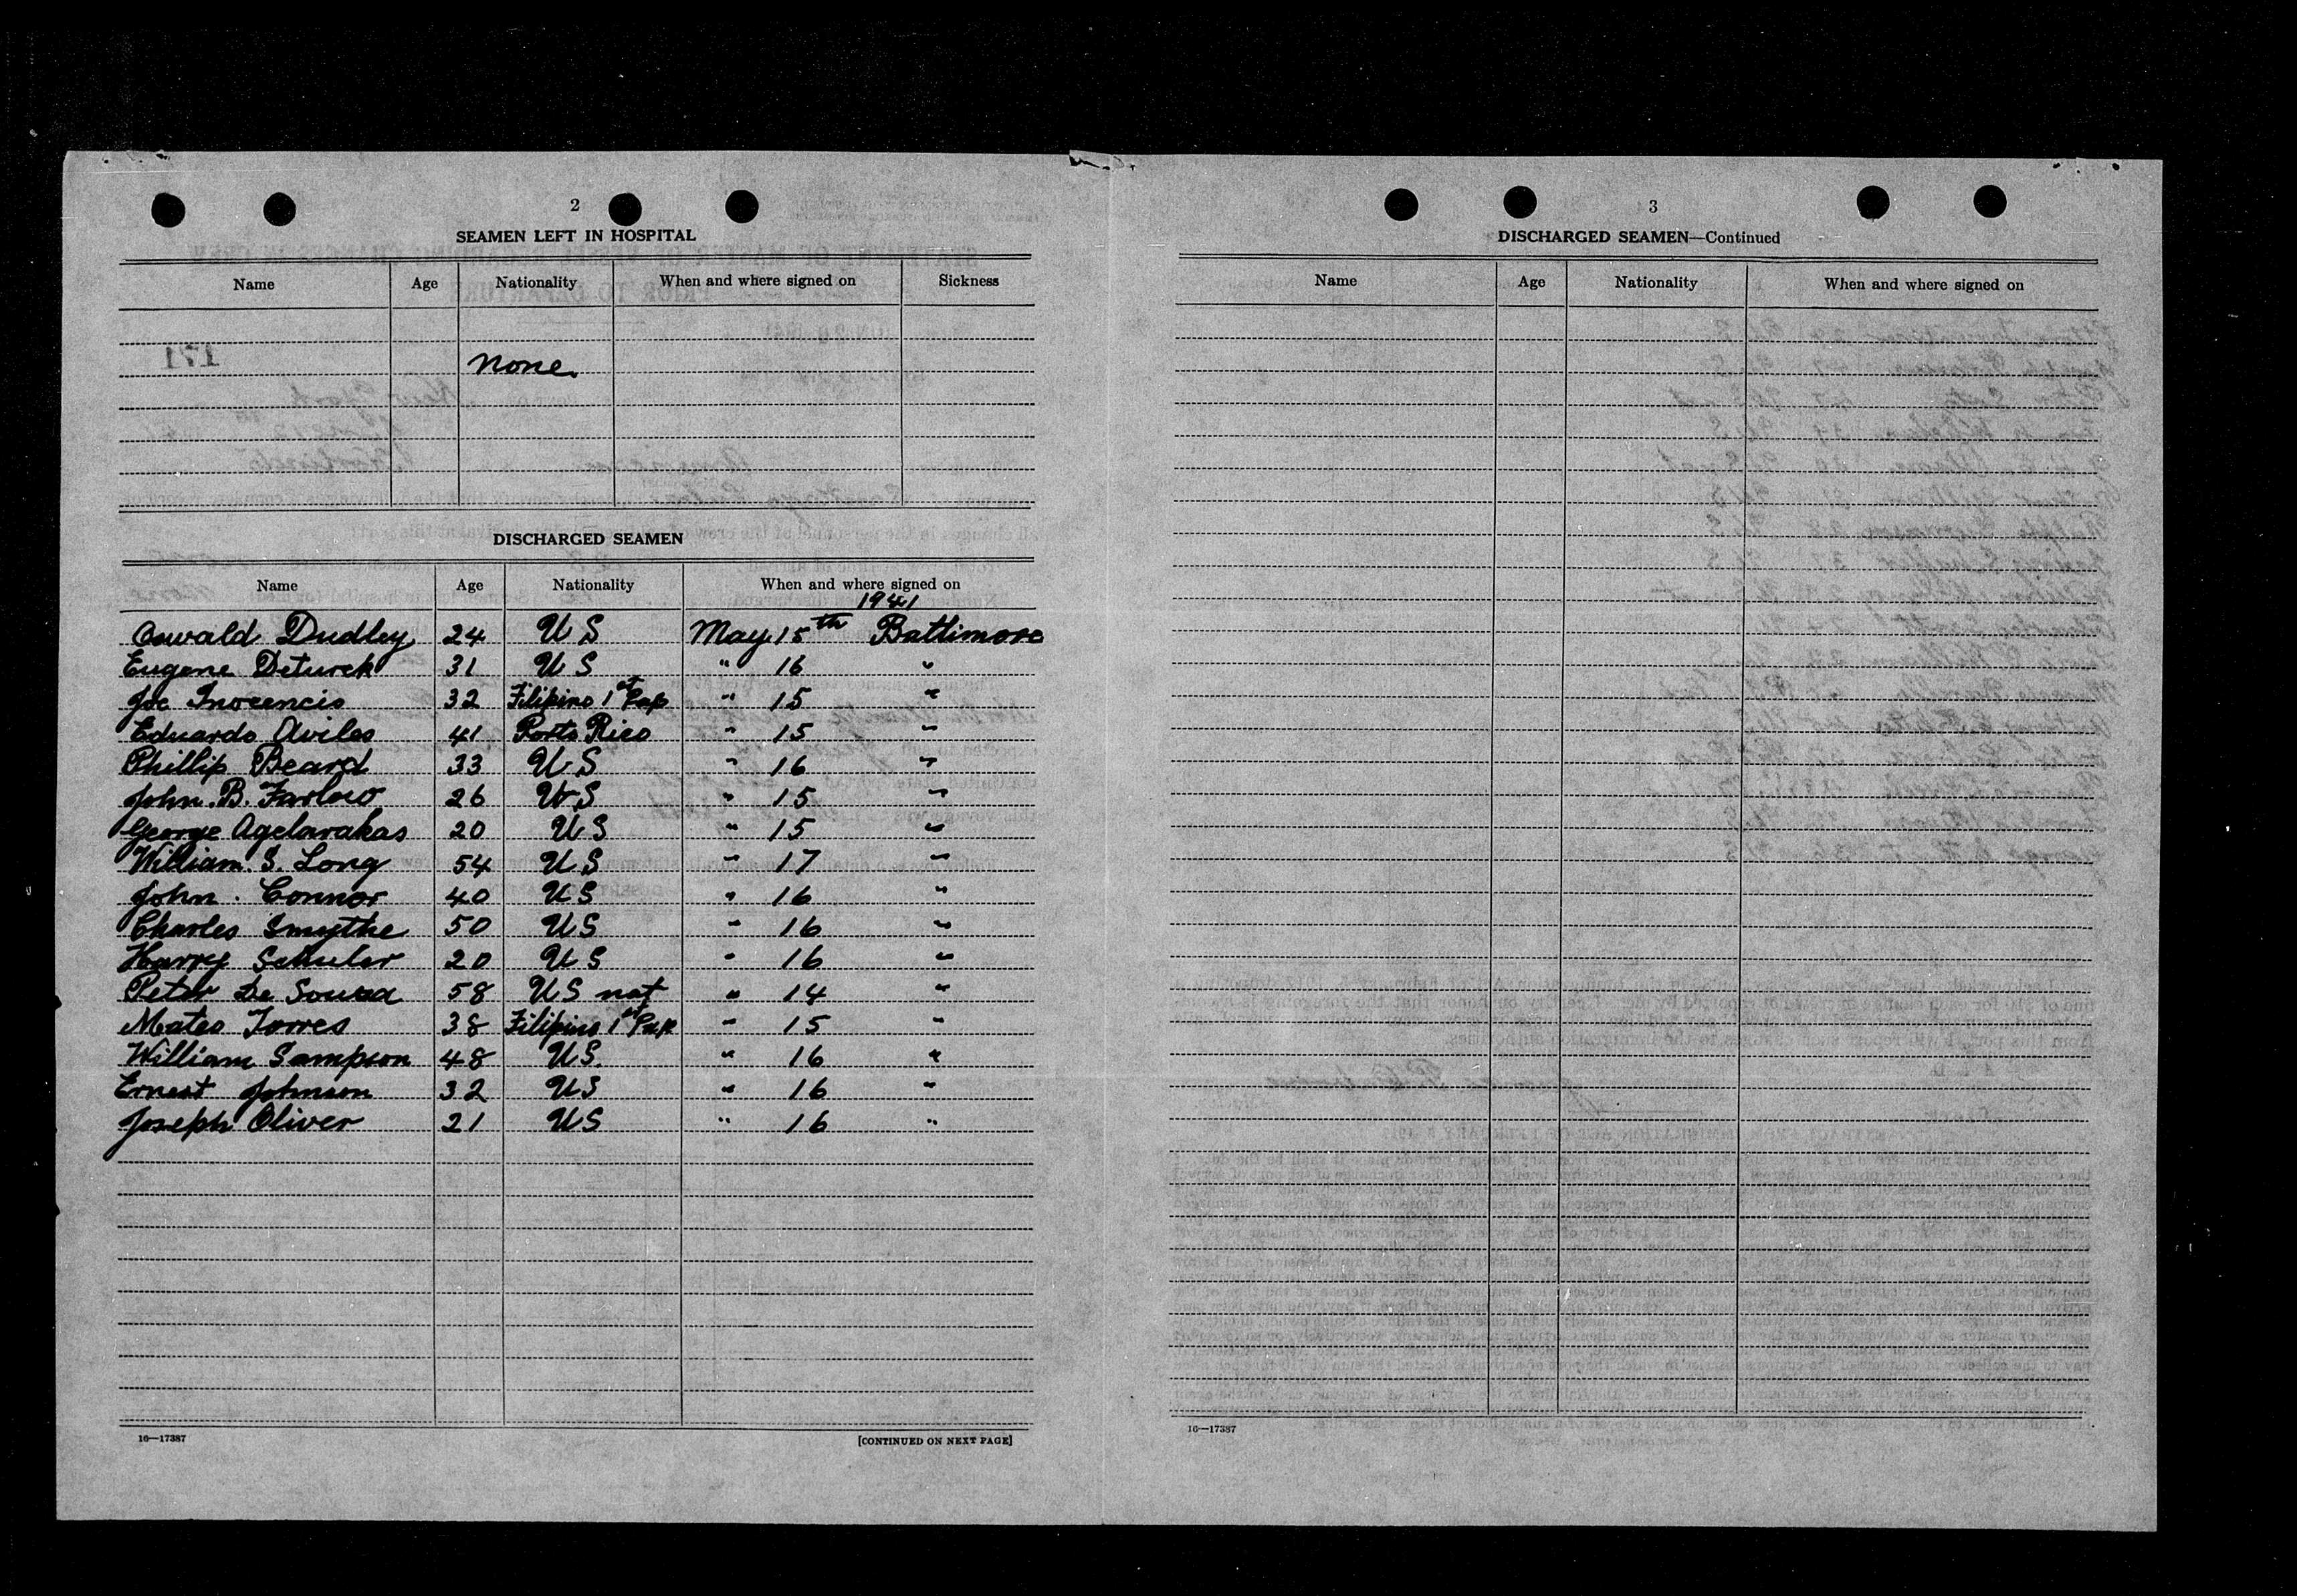 2
SEAMEN LEFT IN HOSPITAL
Name Age Nationality When and where signed on Sickness
171
None
DISCHARGED SEAMEN
Name Age Nationality When and where signed on
1941
Oswald Dudley 24 US May 15th Baltimore
Eugene Deturck 31 US " 16 "
Joe Inocencio 32 Filipino 1st Pap " 15 "
Eduardo Aviles 41 Porto Rico " 15 "
Phillip Beard 33 US " 16 "
John. B. Farlow 26 US " 15 "
George Agelarakas 20 US " 15 "
William. S. Long 54 US " 17 "
John. Connor 40 US " 16 "
Charles Smythe 50 US " 16 "
Harry Schuler 20 US " 16 "
Peter De Souza 58 US nat " 14 "
Mateo Torres 38 Filipino 1st Pap " 15 "
William Sampson 48 US. " 16 "
Ernest Johnson 32 US " 16 "
Joseph Oliver 21 US " 16 "
16—17387
[CONTINUED ON NEXT PAGE]
3
DISCHARGED SEAMEN—Continued
Name Age Nationality When and where signed on
16—17387